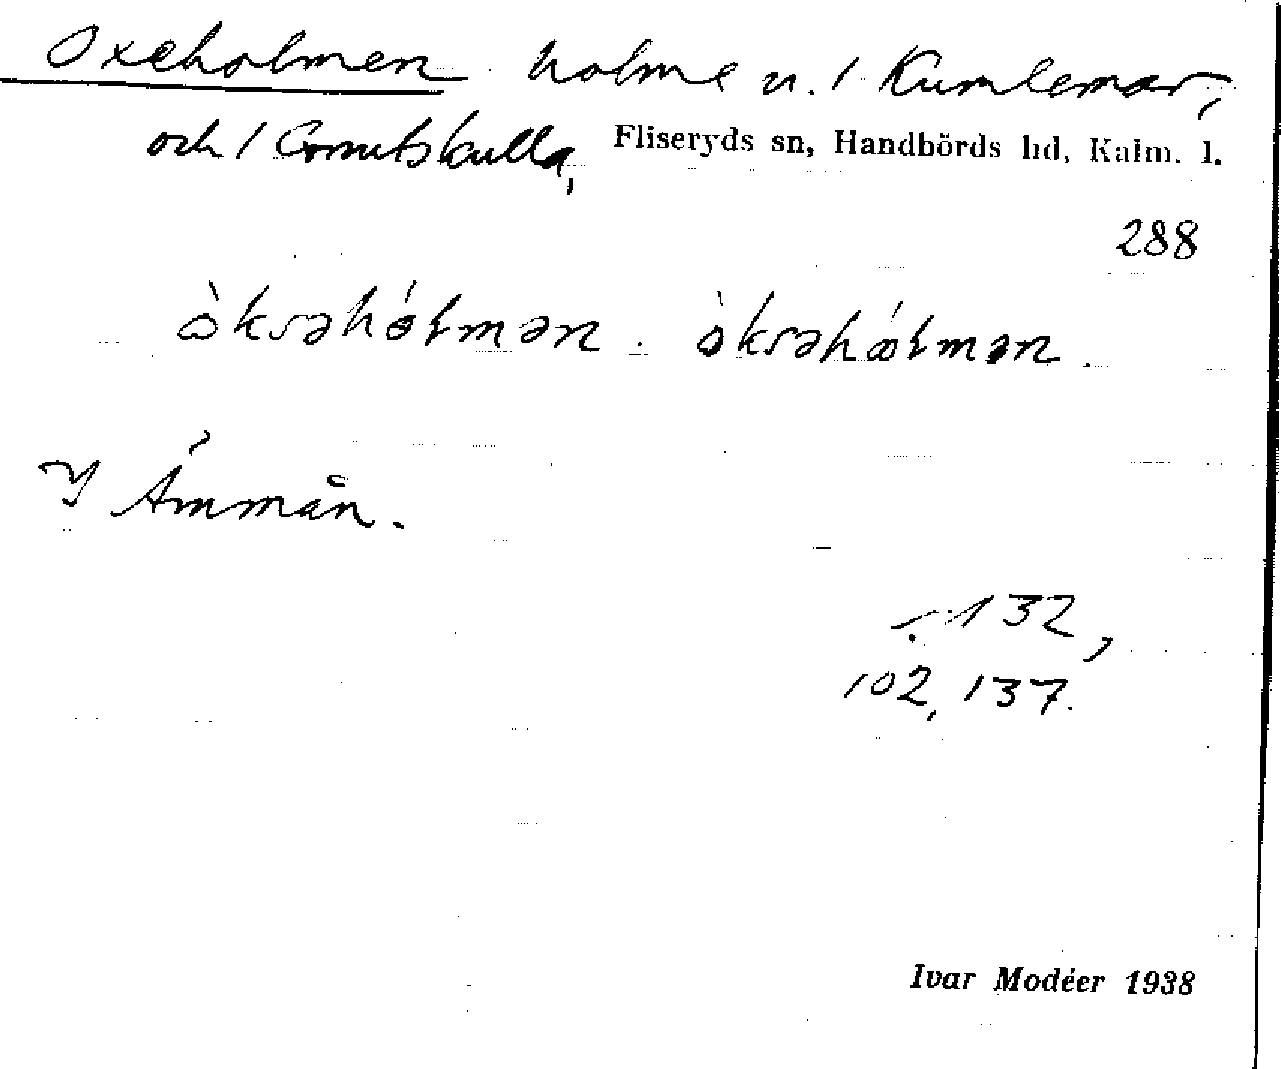 Oxeholmen holme u. / Kumlemar,
och / Fliseryds sn, Handbörds hd, Kalm. l.
288
òksəhólmən . òksəhólmən .
I Åmmån.
132,
102, 137.
Ivar Modéer 1938